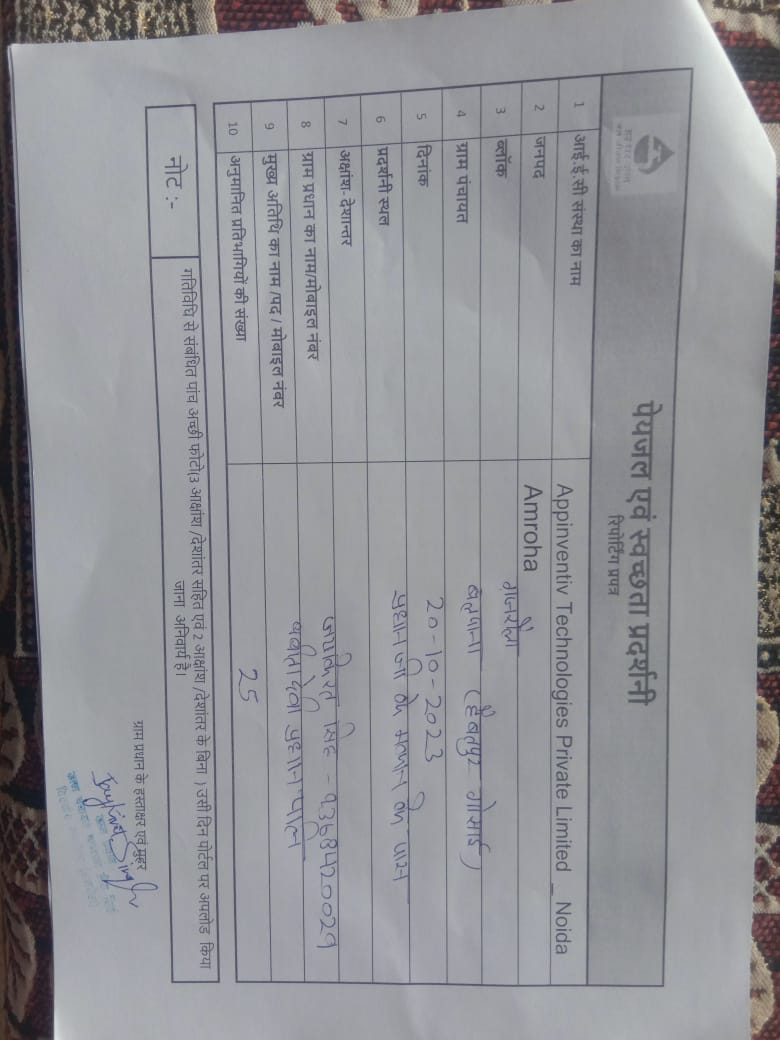 पेयजल एवं स्वच्छता प्रदर्शनी
रिपोर्टिंग प्रपत्र
1 आई.ई.सी संस्था का नाम Appinventiv Technologies Private Limited _ Noida
2 जनपद Amroha
3 ब्लॉक गजरौला
4 ग्राम पंचायत
5 दिनांक 20-10-2023
6 प्रदर्शनी स्थल प्रधान जी के मकान के पास
7 अक्षांश- देशान्तर
8 ग्राम प्रधान का नाम/मोबाइल नंबर सिंह - 9368420029
9 मुख्य अतिथि का नाम /पद / मोबाइल नंबर देवी प्रधान
10 अनुमानित प्रतिभागियों की संख्या 25
नोट :- गतिविधि से संबंधित पांच अच्छी फोटो(3 आक्षांश /देशांतर सहित एवं 2 आक्षांश /देशांतर के बिना ) उसी दिन पोर्टल पर अपलोड किया
जाना अनिवार्य है।
ग्राम प्रधान के हस्ताक्षर एवं मुहर